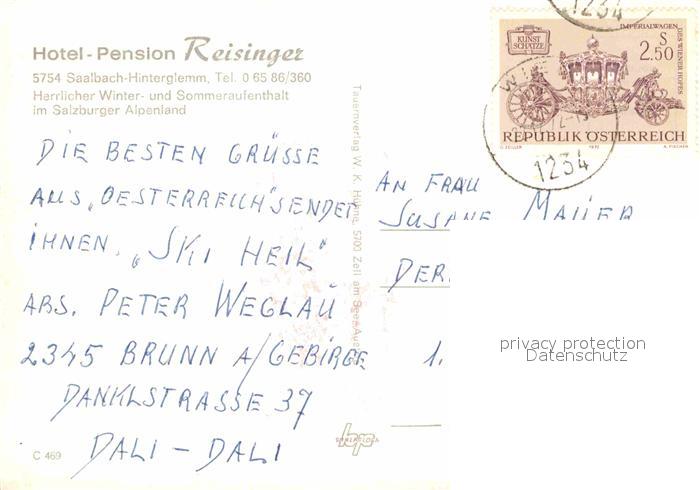 Hotel-Pension Reisinger
5754 Saalbach-Hinterglemm, Tel. 0 65 86/360
Herrlicher Winter- und Sommeraufenthalt
im Salzburger Alpenland
DIE BESTEN GRÜSSE
AUS „OESTERREICH" SENDET
IHNEN. „SKI HEIL"
ABS. PETER WEGLAU
2345 BRUNN A/GEBIRGE
DANKLSTRASSE 37
DALI - DALI
C 469
Tauernverlag W. K. 5700 Zell am See
KUNST
SCHÄTZE
IMPERIALWAGEN
DES WIENER HOFES
S
2.50
REPUBLIK ÖSTERREICH
1972
A. FISCHER
1234
1234
AN FRAU
SUSANE MAIIER
DER
1.
privacy protection
Datenschutz